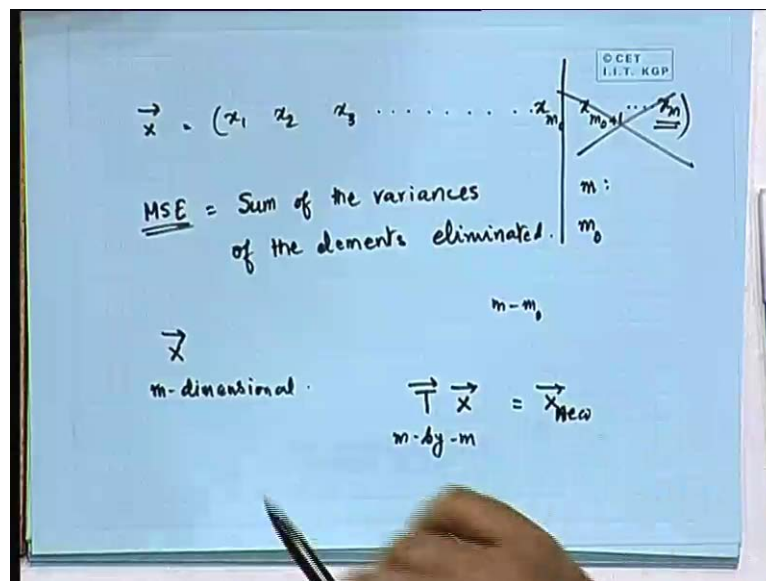 © CET
I.I.T. KGP
x⃗ = (x₁ x₂ x₃ . . . . . . . . . . . x_{m₀} x_{m₀+1} . . . x_m)
m :
MSE = Sum of the variances
of the elements eliminated.
m₀
m-m₀
X⃗
m-dimensional.
T⃗ x⃗ = x⃗_{New}
m-by-m